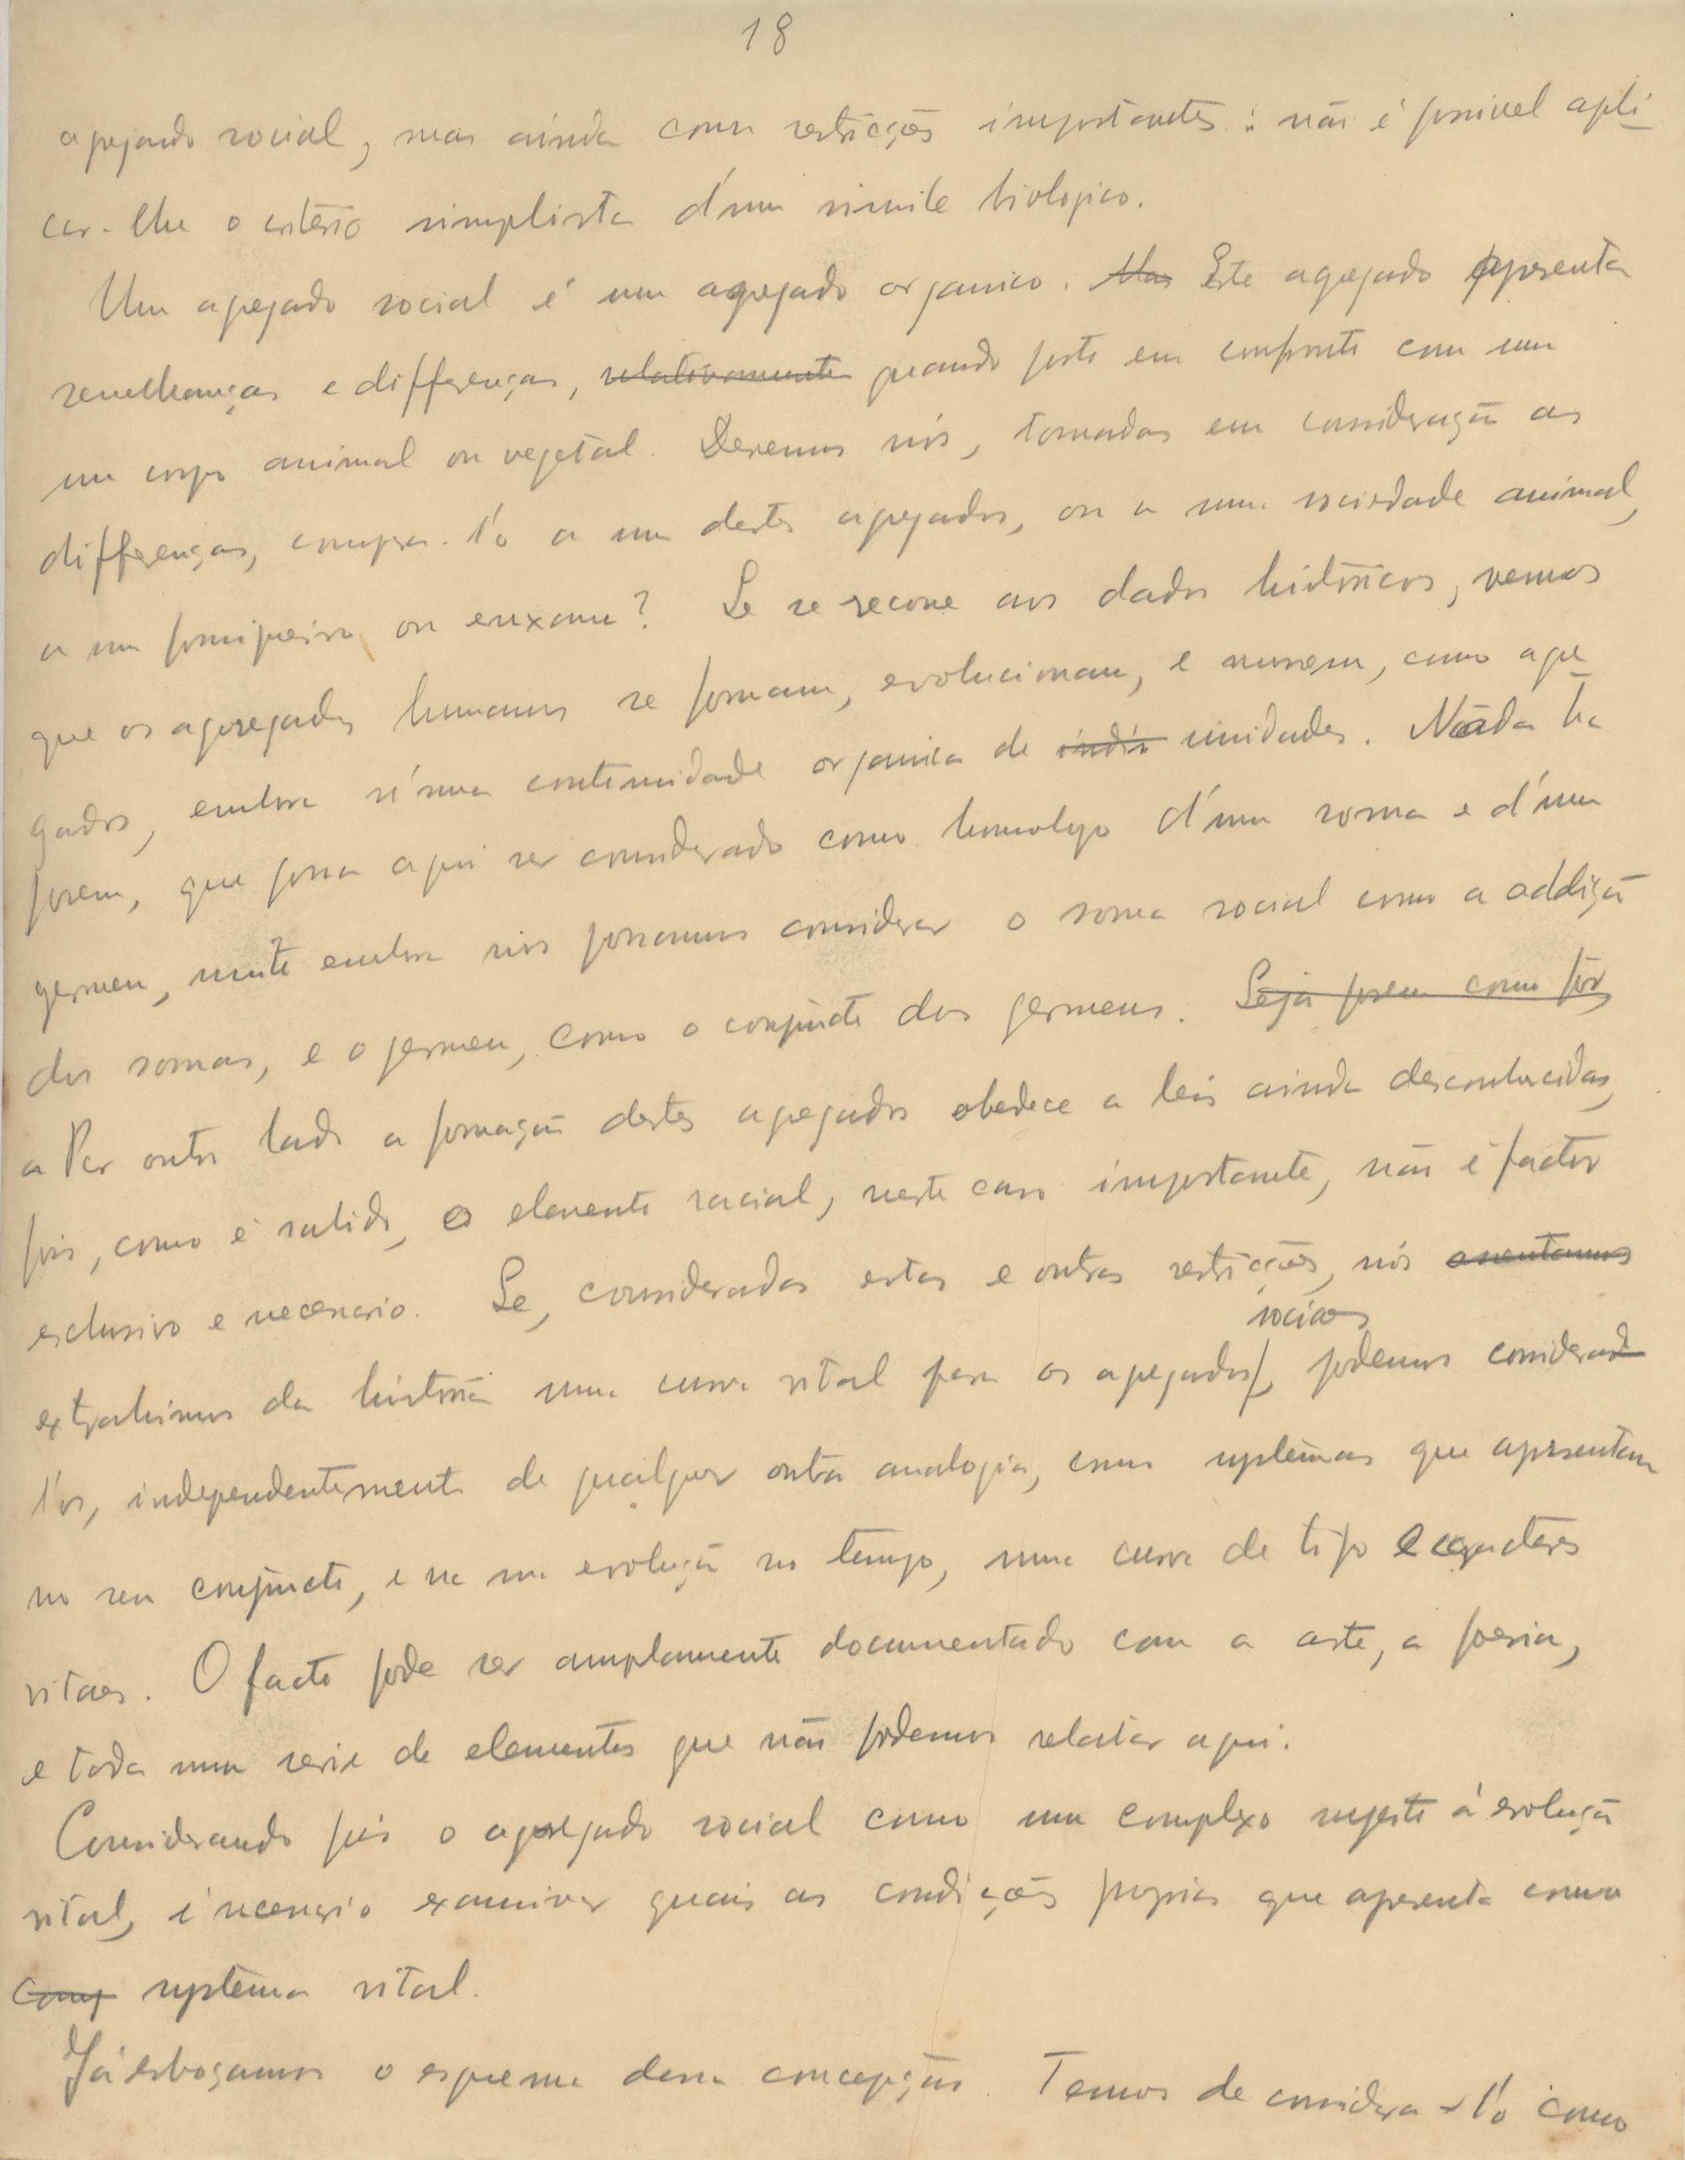 18
agregado social, mas ainda com restricções importantes: não é possivel apli-
car-lhe o critério simplista d'um simile biologico.
Um agregado social é um agregado organico. Mas Este agregado apresenta
semelhanças e differenças, relativamente quando posto em confronto com um
um corpo animal ou vegetal. Devemos nós, tomadas em consideração as
differenças, compara-l'o a um destes agregados, ou a uma sociedade animal,
a um formigueiro ou enxame? Se se recorre aos dados históricos, vemos
que os agregados humanos se formam, evolucionam, e morrem, como agre-
gados, embora n'uma continuidade organica de indiv unidades. Nada ha
porem, que possa aqui ser considerado como homologo d'um soma e d'um
germen, muito embora nós possamos considerar o soma social como a addição
dos somas, e o germen, como o conjuncto dos germens. Seja porem como fôr,
a Por outro lado a formação destes agregados obedece a leis ainda desconhecidas,
pois, como é sabido, o elemento racial, neste caso importante, não é factor
exclusivo e necessario. Se, consideradas estas e outras restricções, nós assentamos
sociaes
extrahimos da história uma curva vital para os agregados, podemos considerad
l'os, independentemente de qualquer outra analogia, como systemas que apresentam
no seu conjuncto, e na sua evolução no tempo, uma curva de tipo e caracteres
vitaes. O facto pode ser amplamente documentado com a arte, a poesia,
e toda uma serie de elementos que não podemos relatar aqui.
Considerando pois o agregado social como um complexo sujeito á evolução
vital, é necessario examinar quais as condições proprias que apresenta como
comp systema vital.
Já esboçamos o esquema dessa concepção. Temos de considera-l'o como